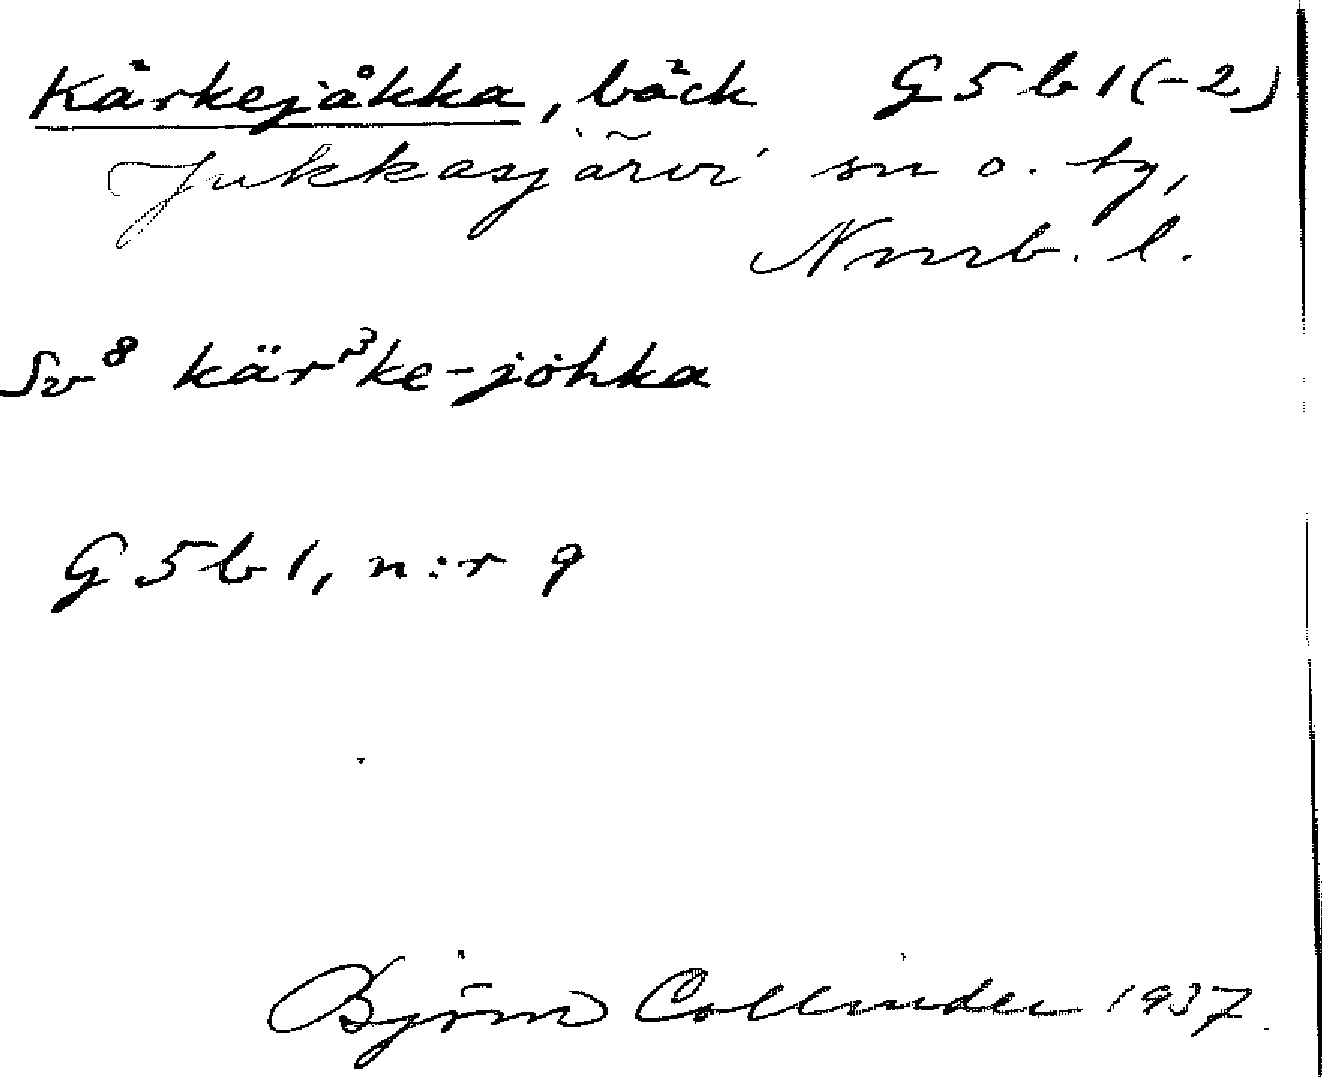 Kärkejåkka, bäck G5b1(-2)
Jukkasjärvi sn o. tg,
Nmrb. l.
Sv⁸ kär³ke-jöhka
G5b1, n:r 9
Björn Collinder 1937.